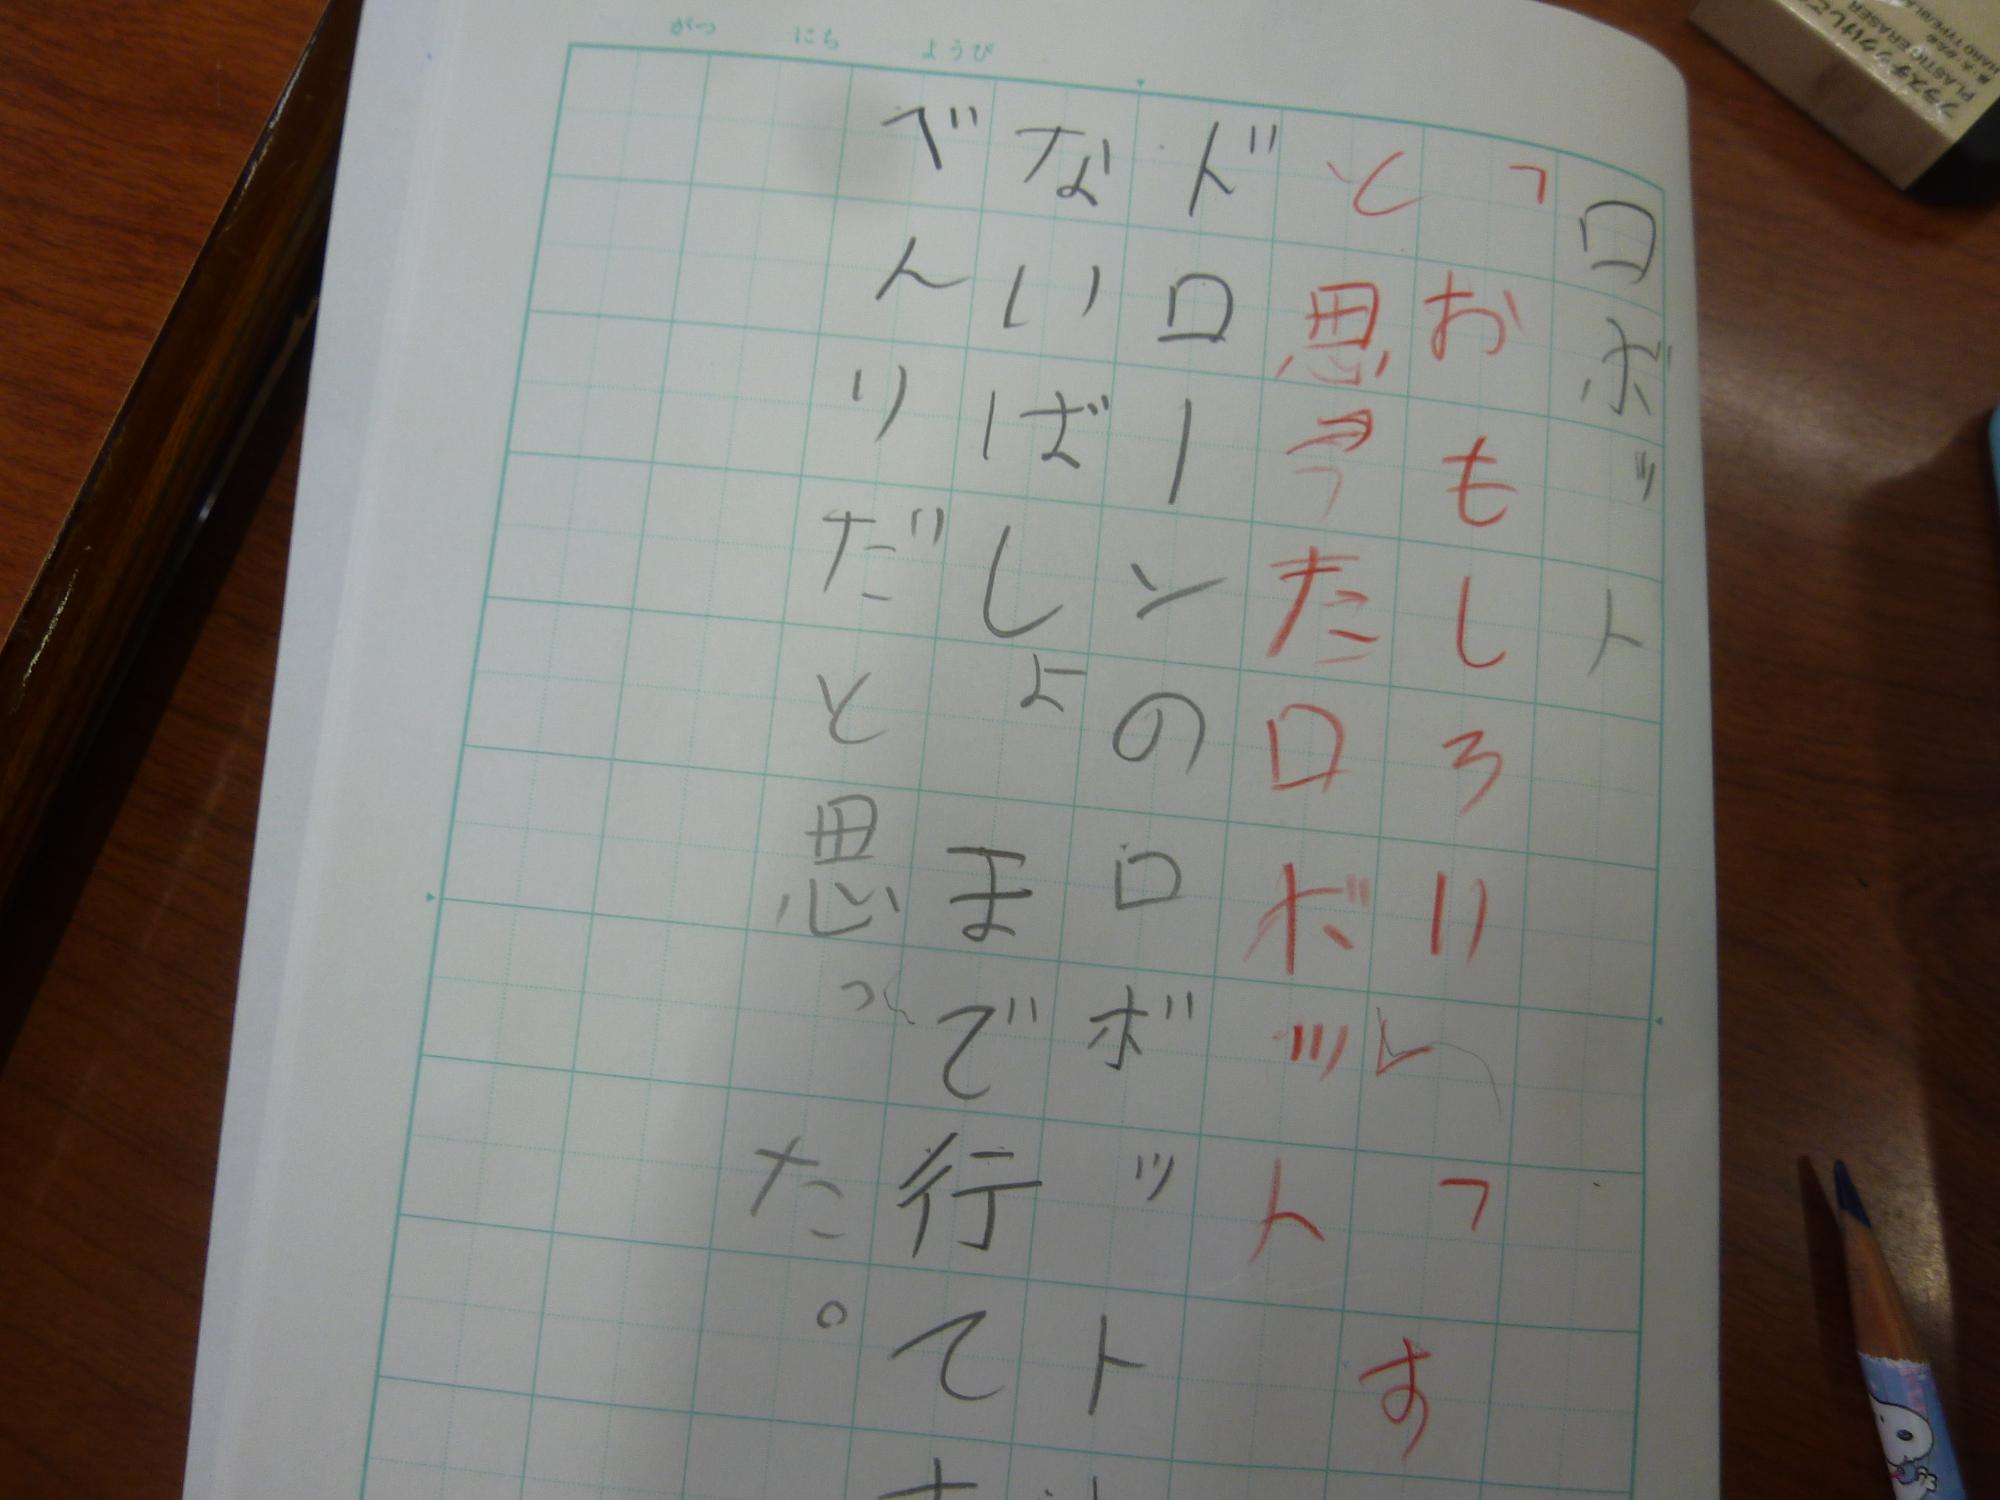 がつ にち ようび
ロボット
「おもしろい」「す
と思ったロボット
ドローンのロボット
ないばしょまで行て
べんりだと思った。
PLASTIC ERASER